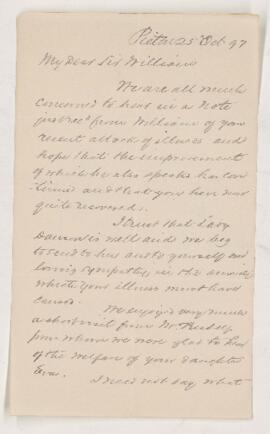 Pictou 25 Oct 97
My Dear Sir William
We are all much
concerned to hear in a note
just rec'd from William of your
recent attack of illness and
hope that the improvement
of which he also speaks has con
tinued and that you have now
quite recovered.
I trust that Lady
Dawson is well and we beg
to send to her and to yourself our
loving sympathy in the
which your illness must have
caused.
We enjoyed very much
a short visit from Mr
from whom we were glad to hear
of the welfare of your daughter
Eva.
I need not say what